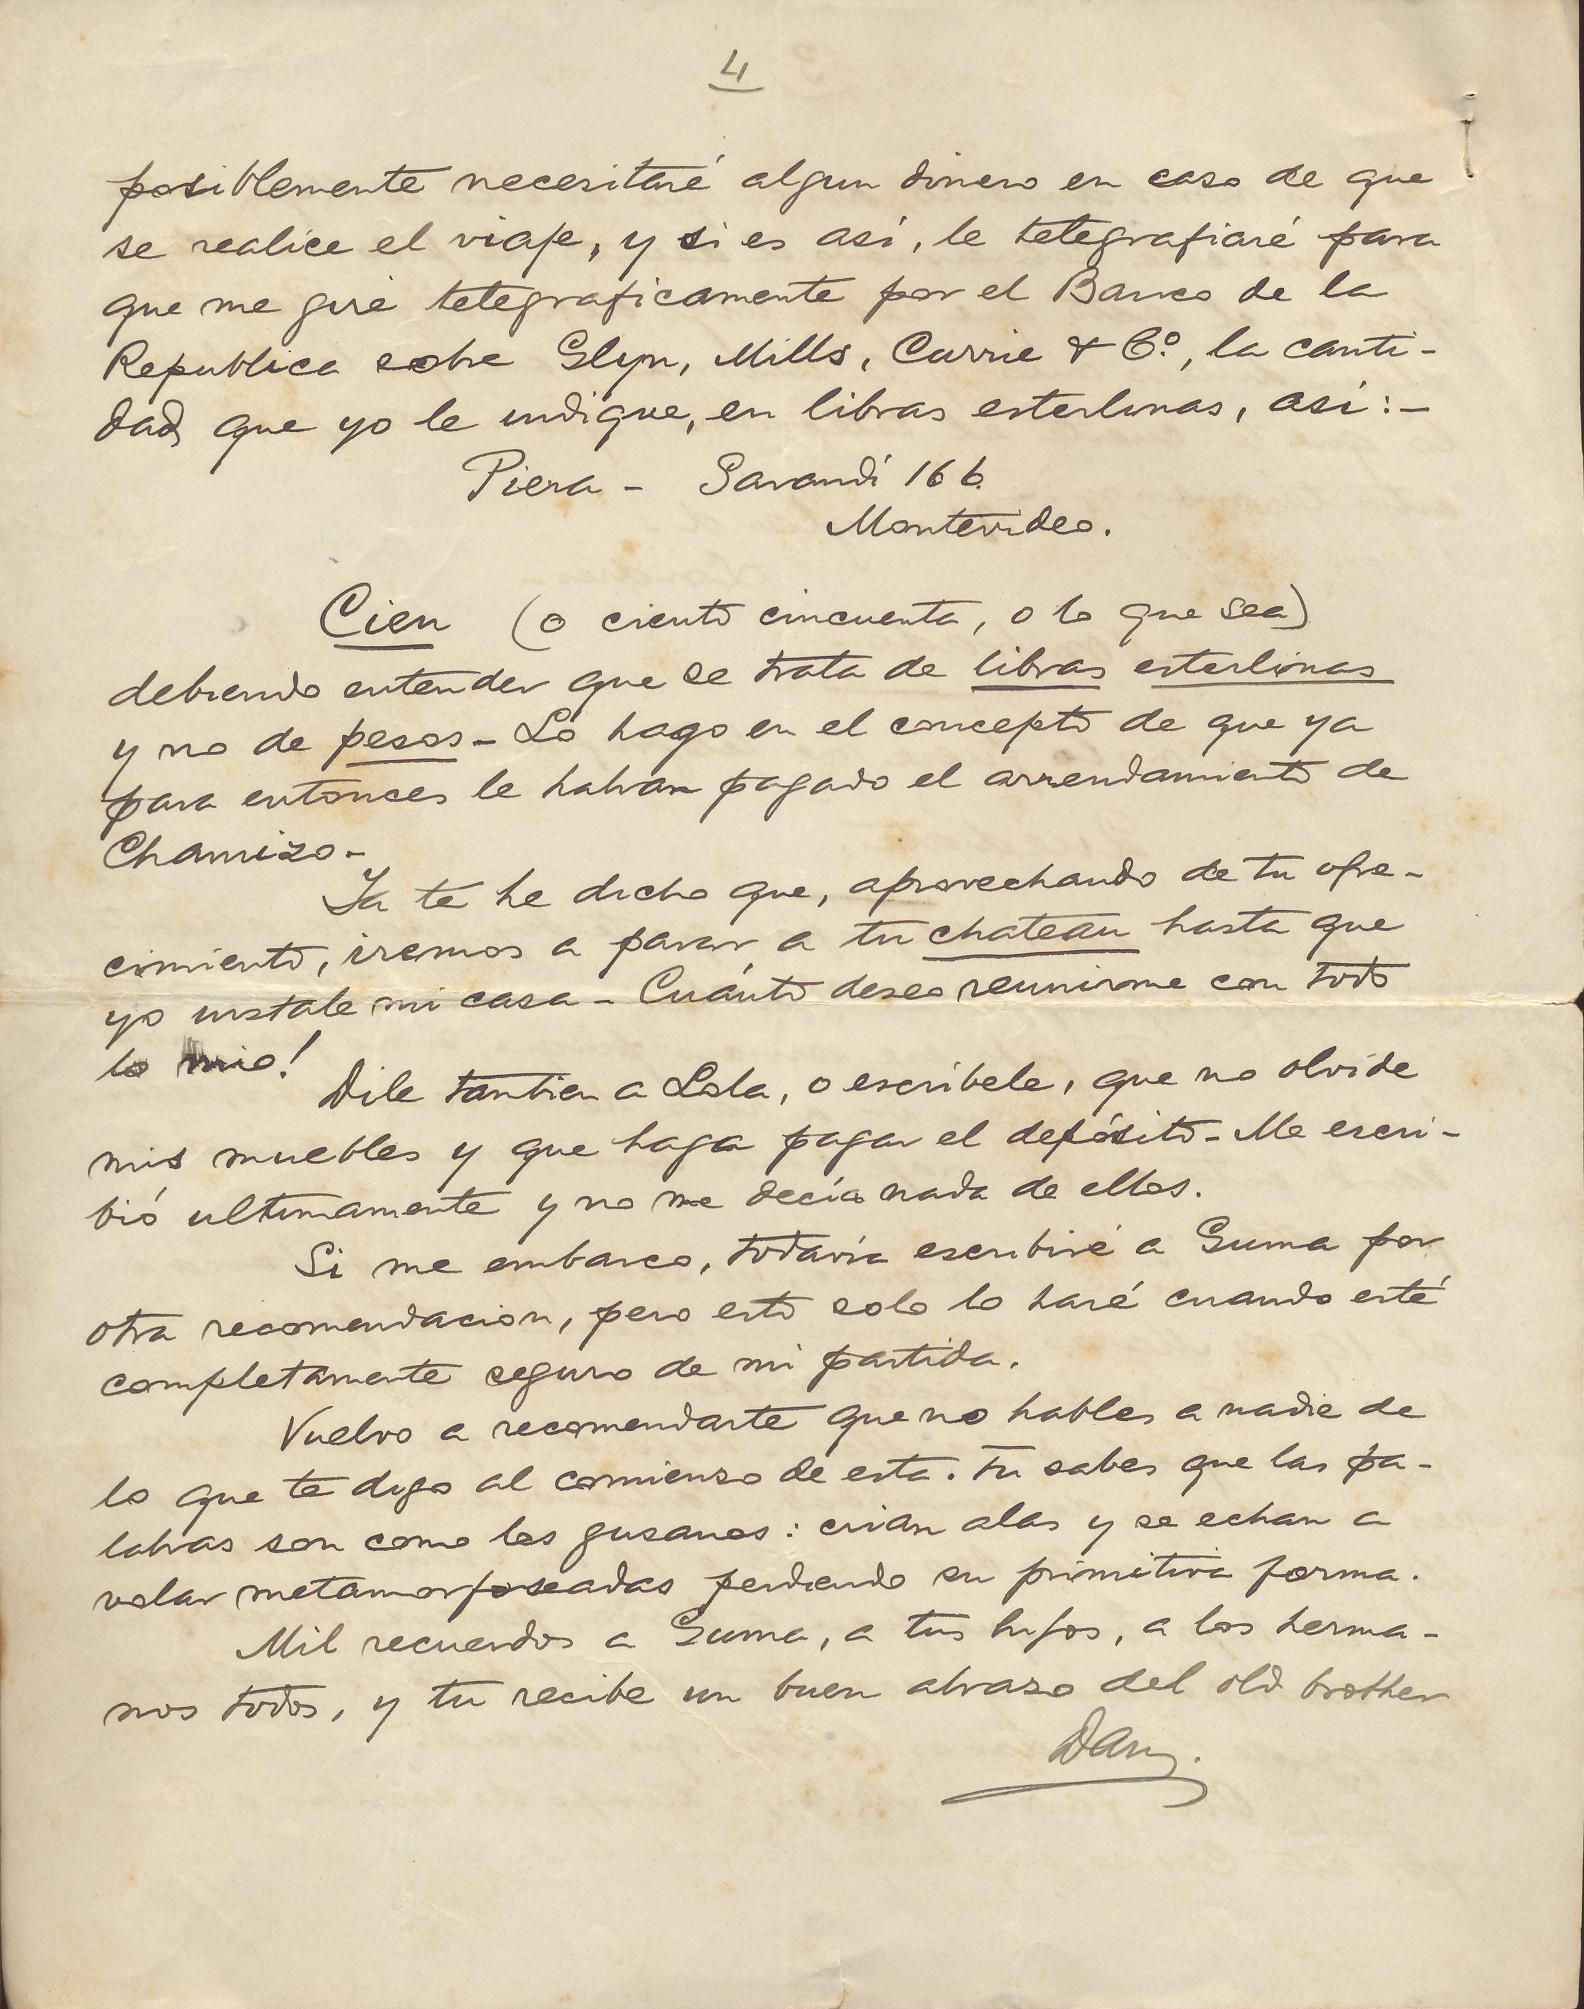 4
posiblemente necesitaré algun dinero en caso de que
se realice el viaje, y si es así, le telegrafiaré para
que me gire telegraficamente por el Banco de la
Republica sobre Glyn, Mills, Currie & Cº, la canti-
dad que yo le indique, en libras esterlinas, así:-
Piera - Sarandí 166
Montevideo.
Cien (o ciento cincuenta, o lo que sea)
debiendo entender que se trata de libras esterlinas
y no de pesos - Lo hago en el concepto de que ya
para entonces le habran pagado el arrendamiento de
Chamizo -
Ya te he dicho que, aprovechando de tu ofre-
cimiento, iremos a parar a tu chateau hasta que
yo instale mi casa - Cuánto deseo reunirme con todo
lo mio!
Dile tambien a Lola, o escríbele, que no olvide
mis muebles y que haga pagar el depósito - Me escri-
bió ultimamente y no me decía nada de ellos.
Si me embarco, todavía escribiré a Guma por
otra recomendacion, pero esto solo lo haré cuando esté
completamente seguro de mi partida.
Vuelvo a recomendarte que no hables a nadie de
lo que te digo al comienzo de esta. Tu sabes que las pa-
labras son como los gusanos: crian alas y se echan a
volar metamorfoseadas perdiendo su primitiva forma.
Mil recuerdos a Guma, a tus hijos, a los herma-
nos todos, y tu recibe un buen abrazo del old brother